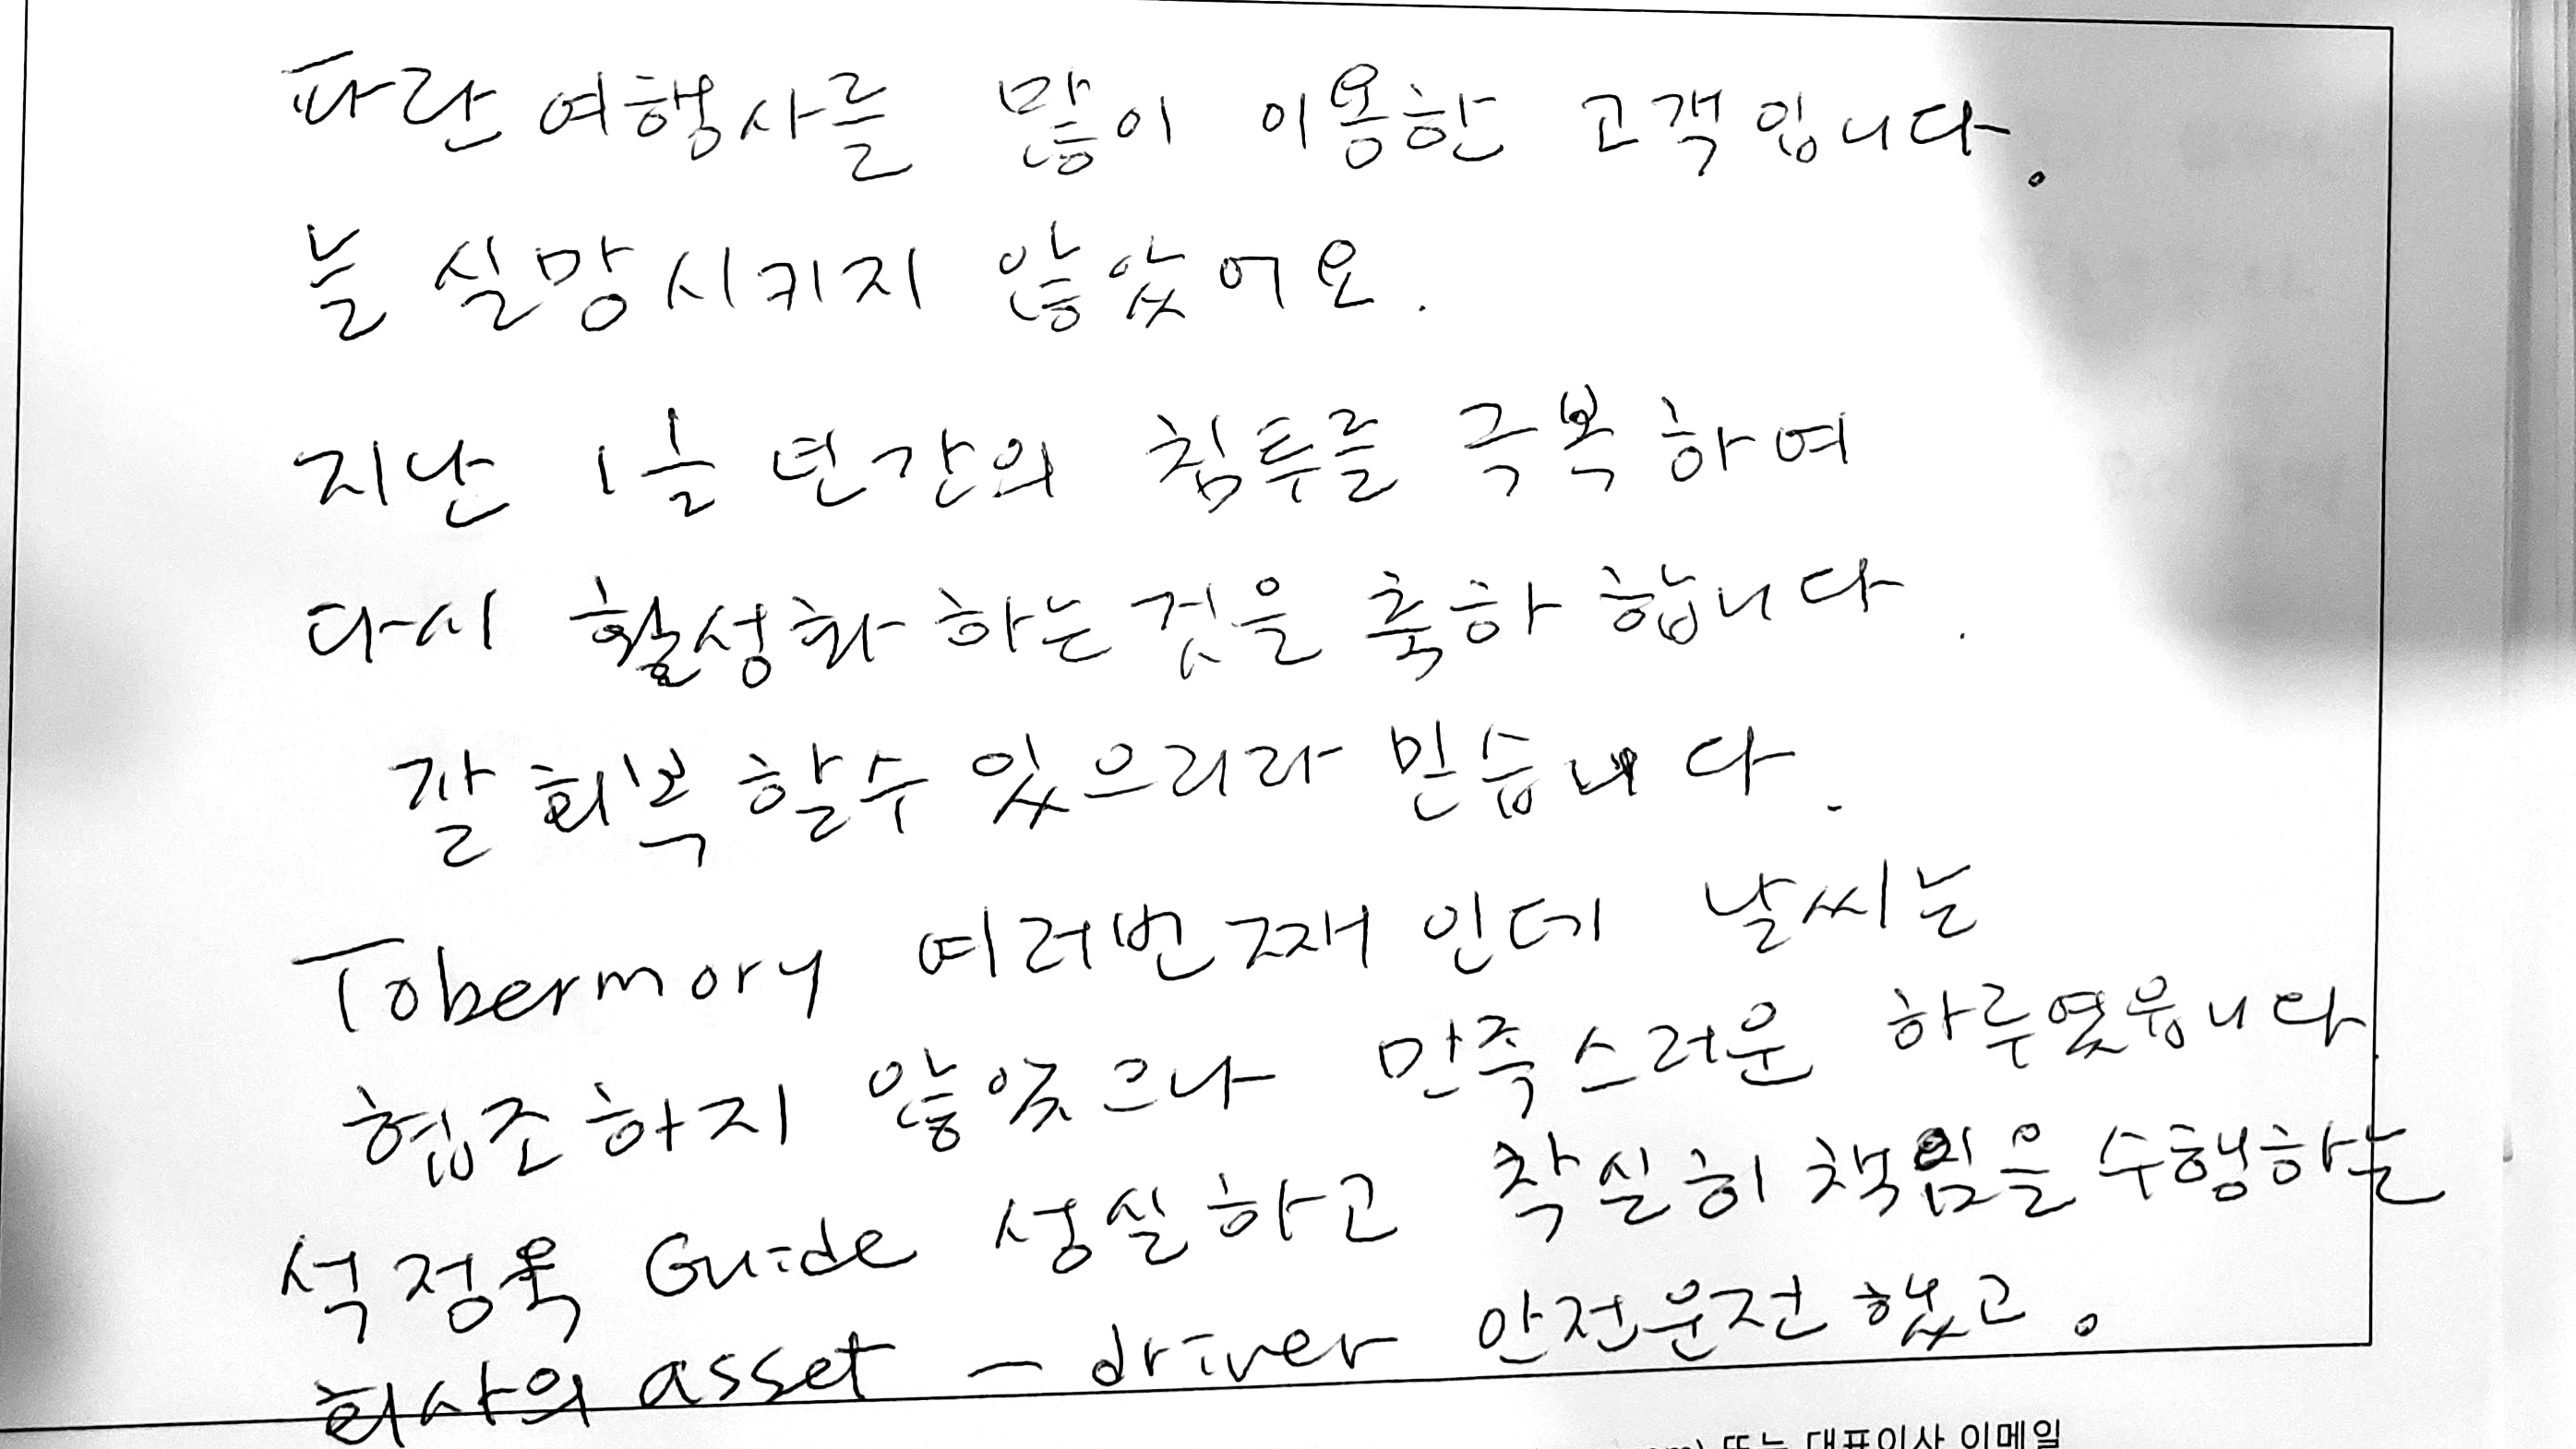 파란여행사를 많이 이용한 고객입니다.
늘 실망시키지 않았어요.
지난 1늘 년간의 침투를 극복하여
다시 활성화하는것을 축하합니다.
잘 회복할수 있으리라 믿습니다.
Tobermory 여러번째인데 날씨는
협조하지 않았으나 만족스러운 하루였읍니다
석정욱 Guide 성실하고 착실히 책임을 수행하는
회사의 asset - driver 안전운전했고.
또는 대표이사 이메일